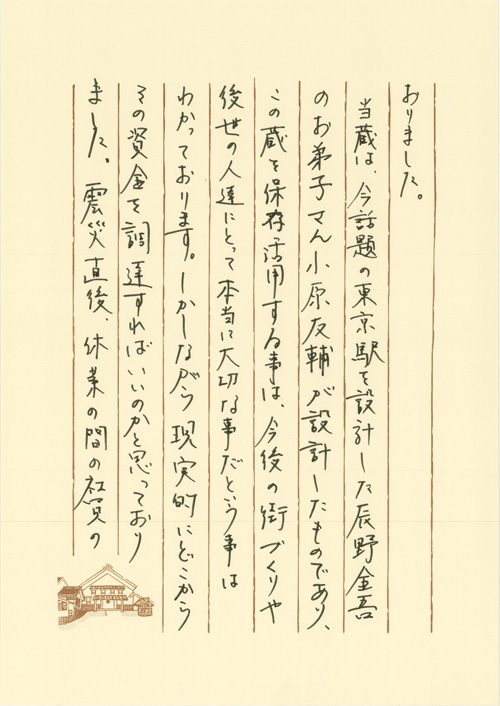 おりました。
当蔵は、今話題の東京駅を設計した辰野金吾
のお弟子さん小原友輔が設計したものであり、
この蔵を保存活用する事は、今後の街づくりや
後世の人達にとって本当に大切な事だという事は
わかっております。しかしながら現実的にどこから
その資金を調達すればいいのかと思っており
ました。震災直後、休業の間の社員の